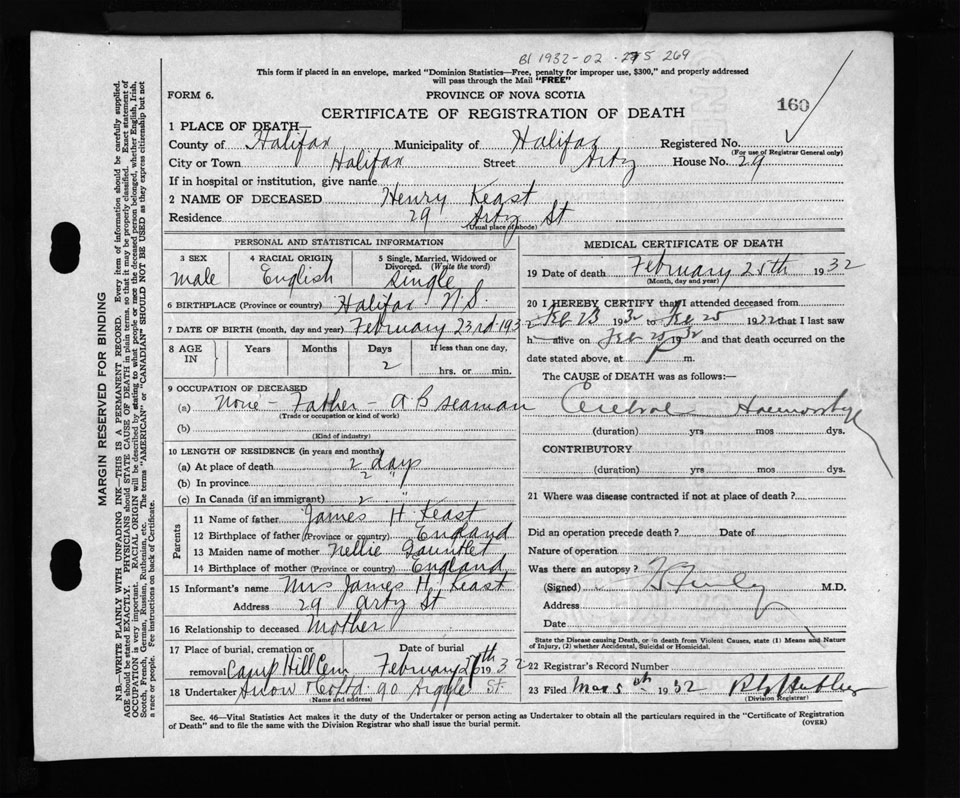 BI 1932-02 -275 269
This form if placed in an envelope, marked "Dominion Statistics—Free, penalty for improper use, $300," and properly addressed
will pass through the Mail "FREE"
FORM 6. PROVINCE OF NOVA SCOTIA
CERTIFICATE OF REGISTRATION OF DEATH 160
1 PLACE OF DEATH—
County of Halifax Municipality of Halifax Registered No.
(For use of Registrar General only)
City or Town Halifax Street Arty House No. 29
If in hospital or institution, give name
2 NAME OF DECEASED Henry Keast
Residence 29 Arty St
(Usual place of abode)
PERSONAL AND STATISTICAL INFORMATION
3 SEX 4 RACIAL ORIGIN 5 Single, Married, Widowed or Divorced. (Write the word)
male English Single
6 BIRTHPLACE (Province or country) Halifax N.S.
7 DATE OF BIRTH (month, day and year) February 23rd 1932
8 AGE IN Years Months Days If less than one day,
2 hrs. or min.
9 OCCUPATION OF DECEASED
(a) None - Father - A B seaman
(Trade or occupation or kind of work)
(b)
(Kind of industry)
10 LENGTH OF RESIDENCE (in years and months)
(a) At place of death 2 days
(b) In province 2 "
(c) In Canada (if an immigrant) 2 "
Parents
11 Name of father James H Keast
12 Birthplace of father (Province or country) England
13 Maiden name of mother Nellie Gauntlet
14 Birthplace of mother (Province or country) England
15 Informant's name Mrs James H Keast
Address 29 Arty St
16 Relationship to deceased Mother
17 Place of burial, cremation or Date of burial
removal Camp Hill Cem February 26th 1932
18 Undertaker Snow & Co Ltd. 90 Argyle St.
(Name and address)
MEDICAL CERTIFICATE OF DEATH
19 Date of death February 25th 1932
(Month, day and year)
20 I HEREBY CERTIFY that I attended deceased from
Feb 23 1932 to Feb 25 1932 that I last saw
h alive on Feb 25 1932 and that death occurred on the
date stated above, at m.
The CAUSE of DEATH was as follows:—
Cerebral Haemorrhage
(duration) yrs mos dys.
CONTRIBUTORY
(duration) yrs mos dys.
21 Where was disease contracted if not at place of death?
Did an operation precede death? Date of
Nature of operation
Was there an autopsy?
(Signed) M.D.
Address
Date
State the Disease causing Death, or in death from Violent Causes, state (1) Means and Nature
of Injury, (2) whether Accidental, Suicidal or Homicidal.
22 Registrar's Record Number
23 Filed Mar 5th 1932
(Division Registrar)
Sec. 46—Vital Statistics Act makes it the duty of the Undertaker or person acting as Undertaker to obtain all the particulars required in the "Certificate of Registration
of Death" and to file the same with the Division Registrar who shall issue the burial permit. (OVER)
MARGIN RESERVED FOR BINDING
N.B.—WRITE PLAINLY WITH UNFADING INK—THIS IS A PERMANENT RECORD. Every item of information should be carefully supplied.
AGE should be stated EXACTLY. PHYSICIANS should STATE CAUSE OF DEATH in plain terms, so that it may be properly classified. Exact statement of
OCCUPATION is very important. RACIAL ORIGIN will be described by stating to what people or race the deceased person belonged, whether English, Irish,
Scotch, French, German, Russian, Ruthenian, etc. The terms "AMERICAN" or "CANADIAN" SHOULD NOT BE USED as they express citizenship but not
a race or people. Fee instructions on back of Certificate.